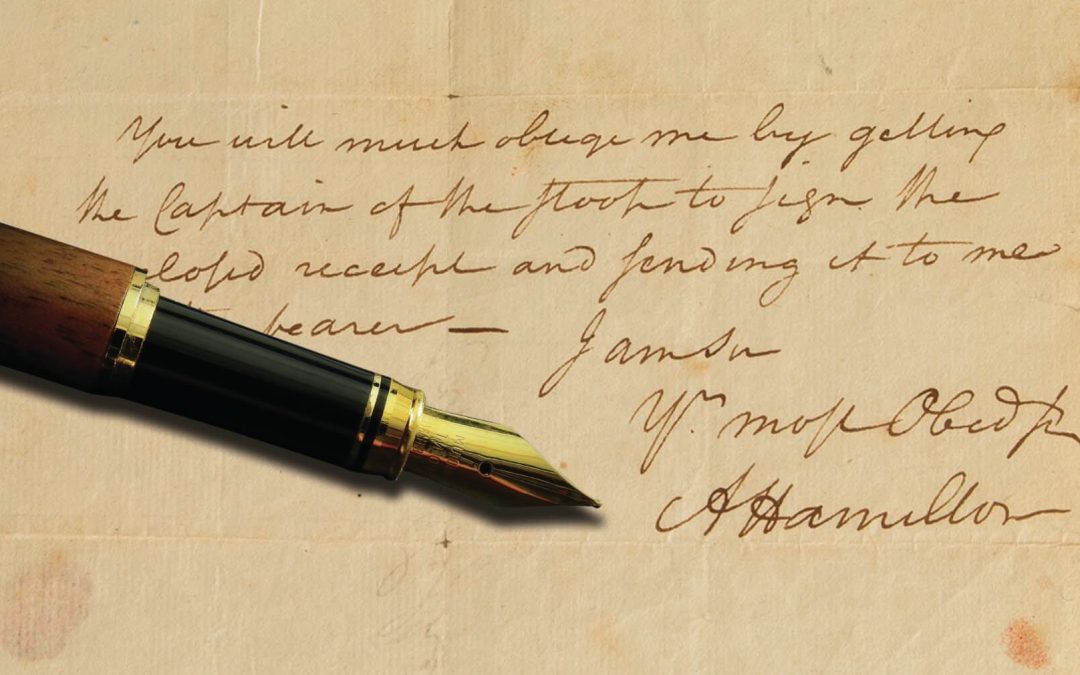 You will much oblige me by getting
the Captain of the sloop to sign the
closed receipt and sending it to me
bearer —
I am Sir
Yr. most Obed
A Hamilton